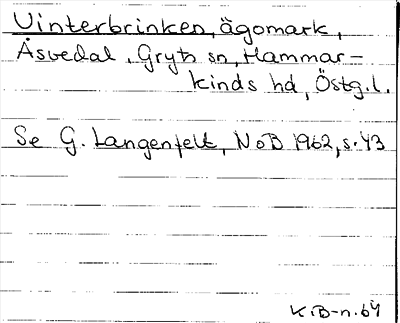 Vinterbrinken, ägomark,
Åsvedal, Gryts sn, Hammar-
kinds hd, Östg.l.
Se G. Langenfelt, NoB 1962, s. 43
K.B-n. 64